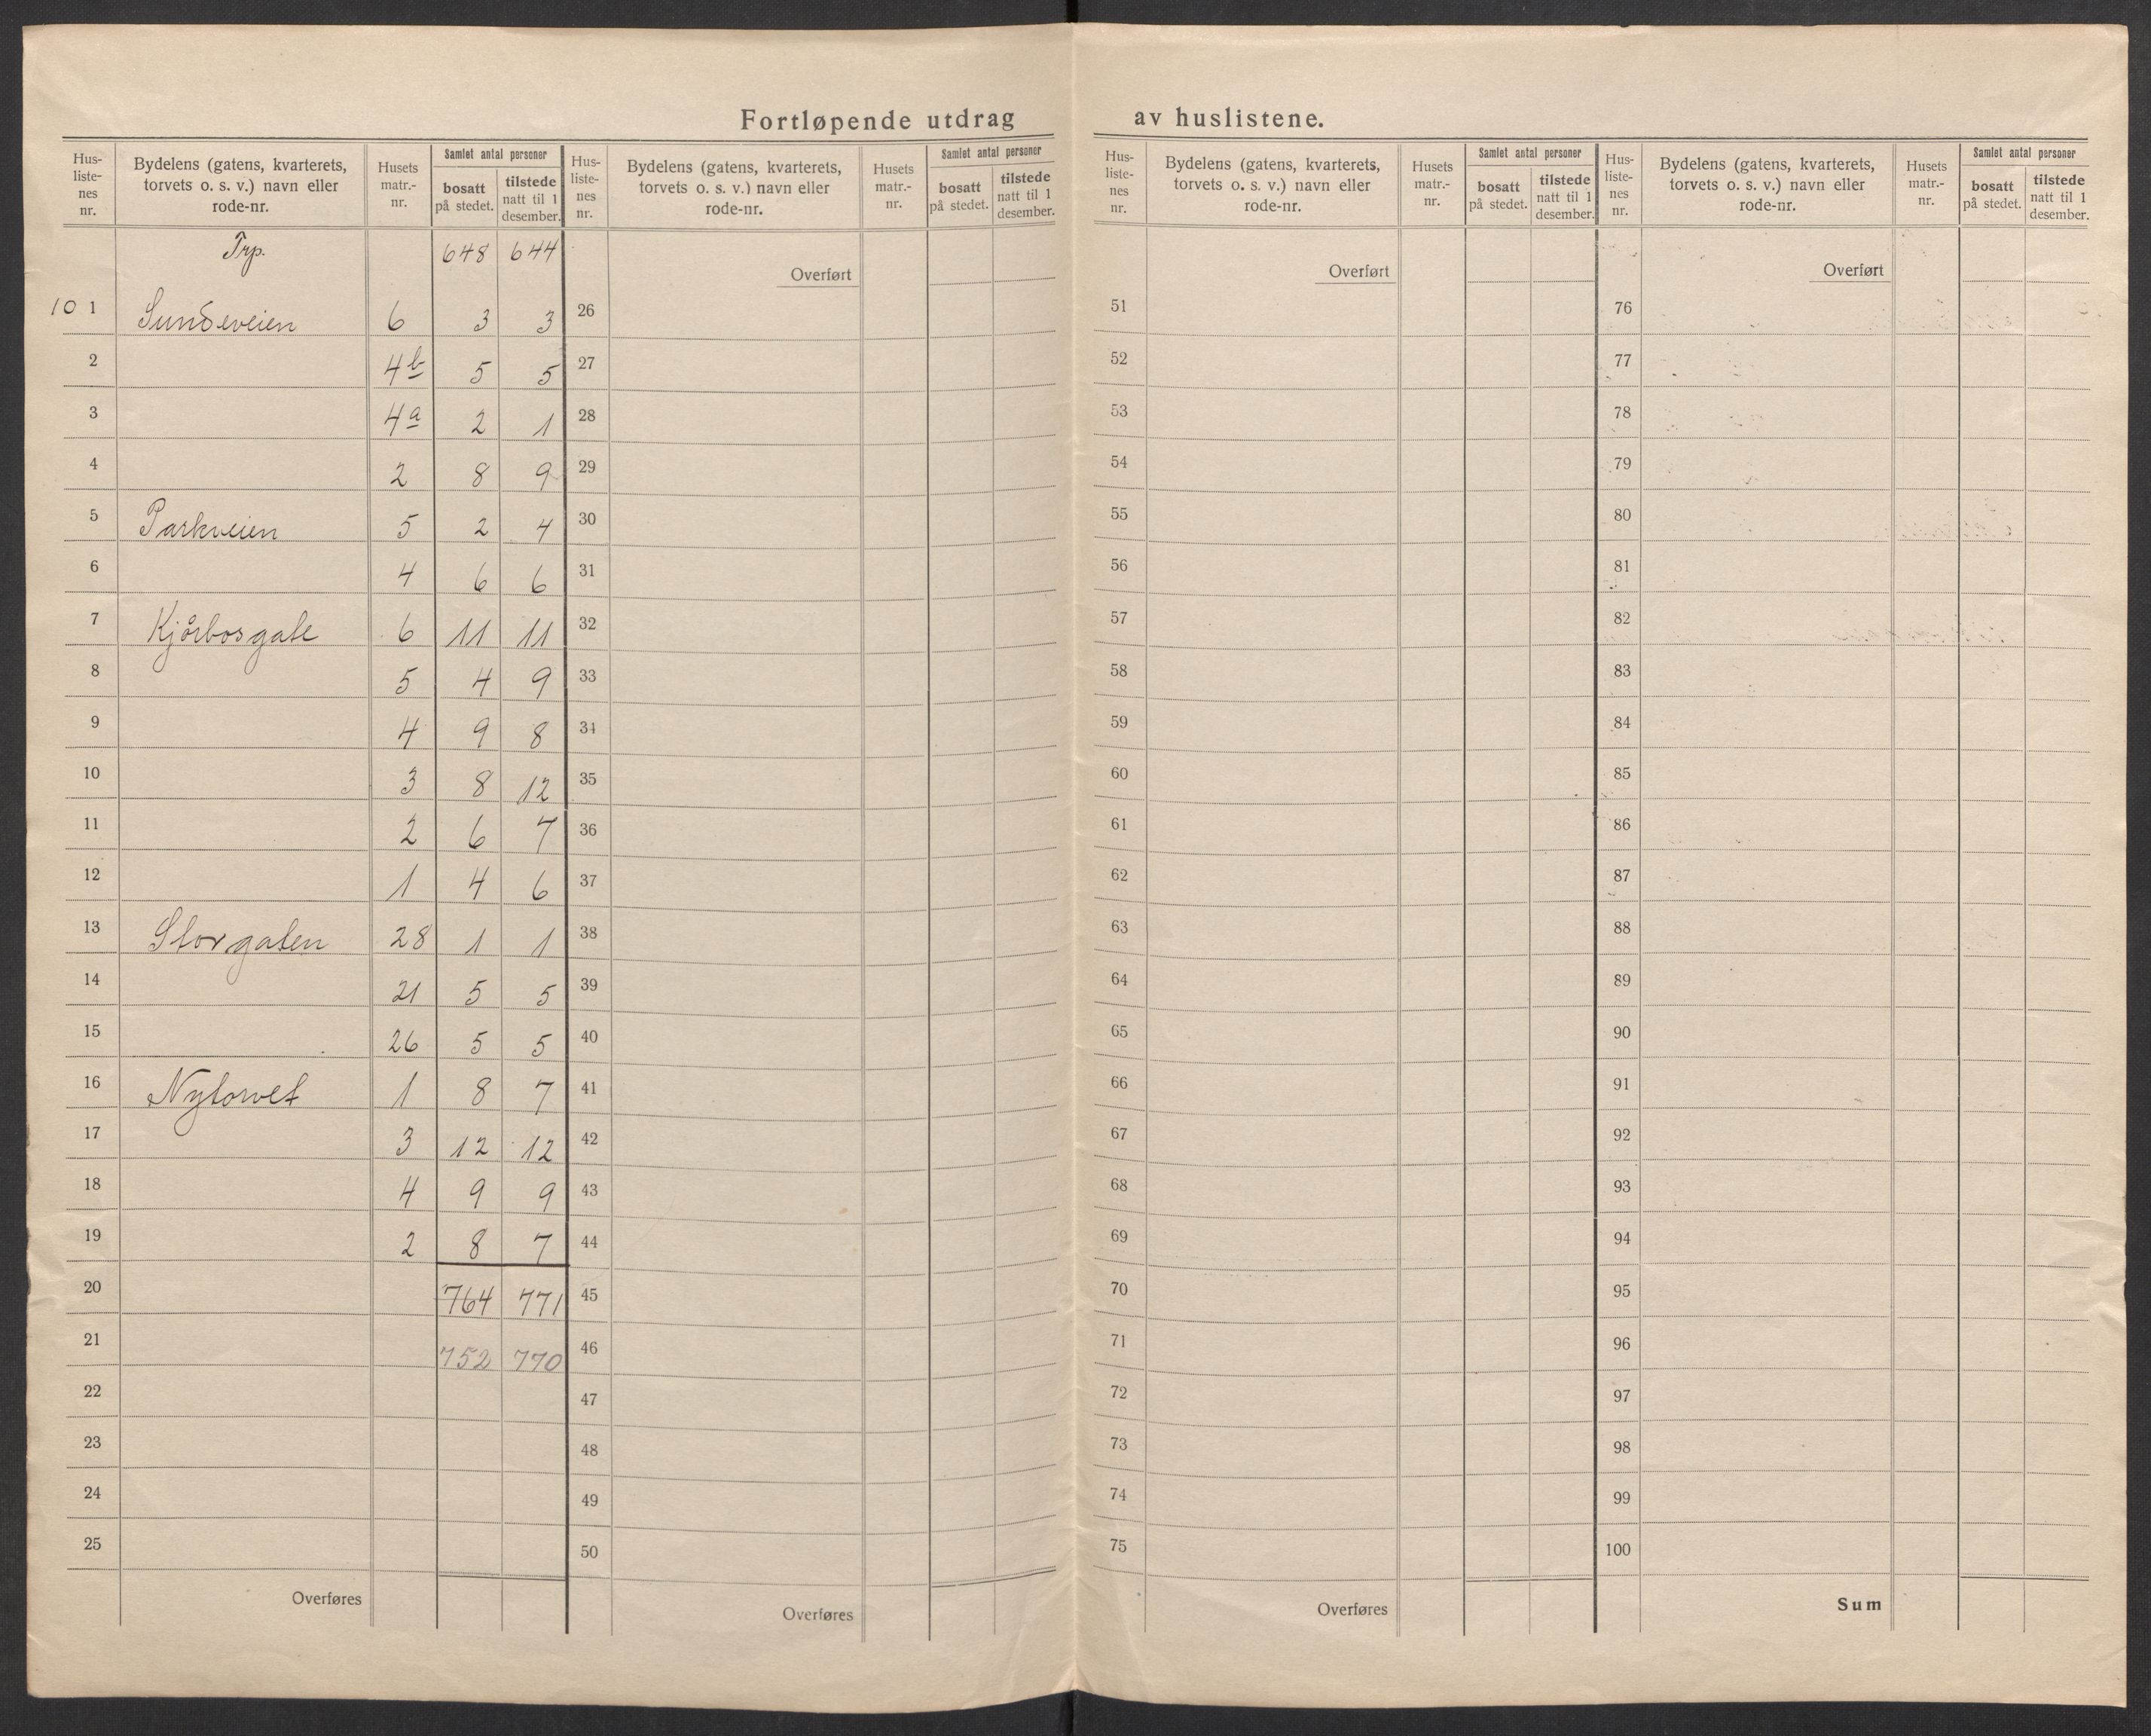 Fortløpende utdrag av huslistene.
Hus-liste-nes nr. | Bydelens (gatens, kvarterets, torvets o. s. v.) navn eller rode-nr. | Husets matr.-nr. | Samlet antal personer | bosatt på stedet. | tilstede natt til 1 desember.
Hus-liste-nes nr. | Bydelens (gatens, kvarterets, torvets o. s. v.) navn eller rode-nr. | Husets matr.-nr. | Samlet antal personer | bosatt på stedet. | tilstede natt til 1 desember.
Hus-liste-nes nr. | Bydelens (gatens, kvarterets, torvets o. s. v.) navn eller rode-nr. | Husets matr.-nr. | Samlet antal personer | bosatt på stedet. | tilstede natt til 1 desember.
Hus-liste-nes nr. | Bydelens (gatens, kvarterets, torvets o. s. v.) navn eller rode-nr. | Husets matr.-nr. | Samlet antal personer | bosatt på stedet. | tilstede natt til 1 desember.
Trp. 648 644
10 1 Sundeveien 6 3 3
2 4b 5 5
3 4a 2 1
4 2 8 9
5 Parkveien 5 2 4
6 4 6 6
7 Kjørbosgate 6 11 11
8 5 4 9
9 4 9 8
10 3 8 12
11 2 6 7
12 1 4 6
13 Storgaten 28 1 1
14 21 5 5
15 26 5 5
16 Nytorvet 1 8 7
17 3 12 12
18 4 9 9
19 2 8 7
20 764 771
21 752 770
22
23
24
25
Overføres
Overført
26
27
28
29
30
31
32
33
34
35
36
37
38
39
40
41
42
43
44
45
46
47
48
49
50
Overføres
Overført
51
52
53
54
55
56
57
58
59
60
61
62
63
64
65
66
67
68
69
70
71
72
73
74
75
Overføres
Overført
76
77
78
79
80
81
82
83
84
85
86
87
88
89
90
91
92
93
94
95
96
97
98
99
100
Sum